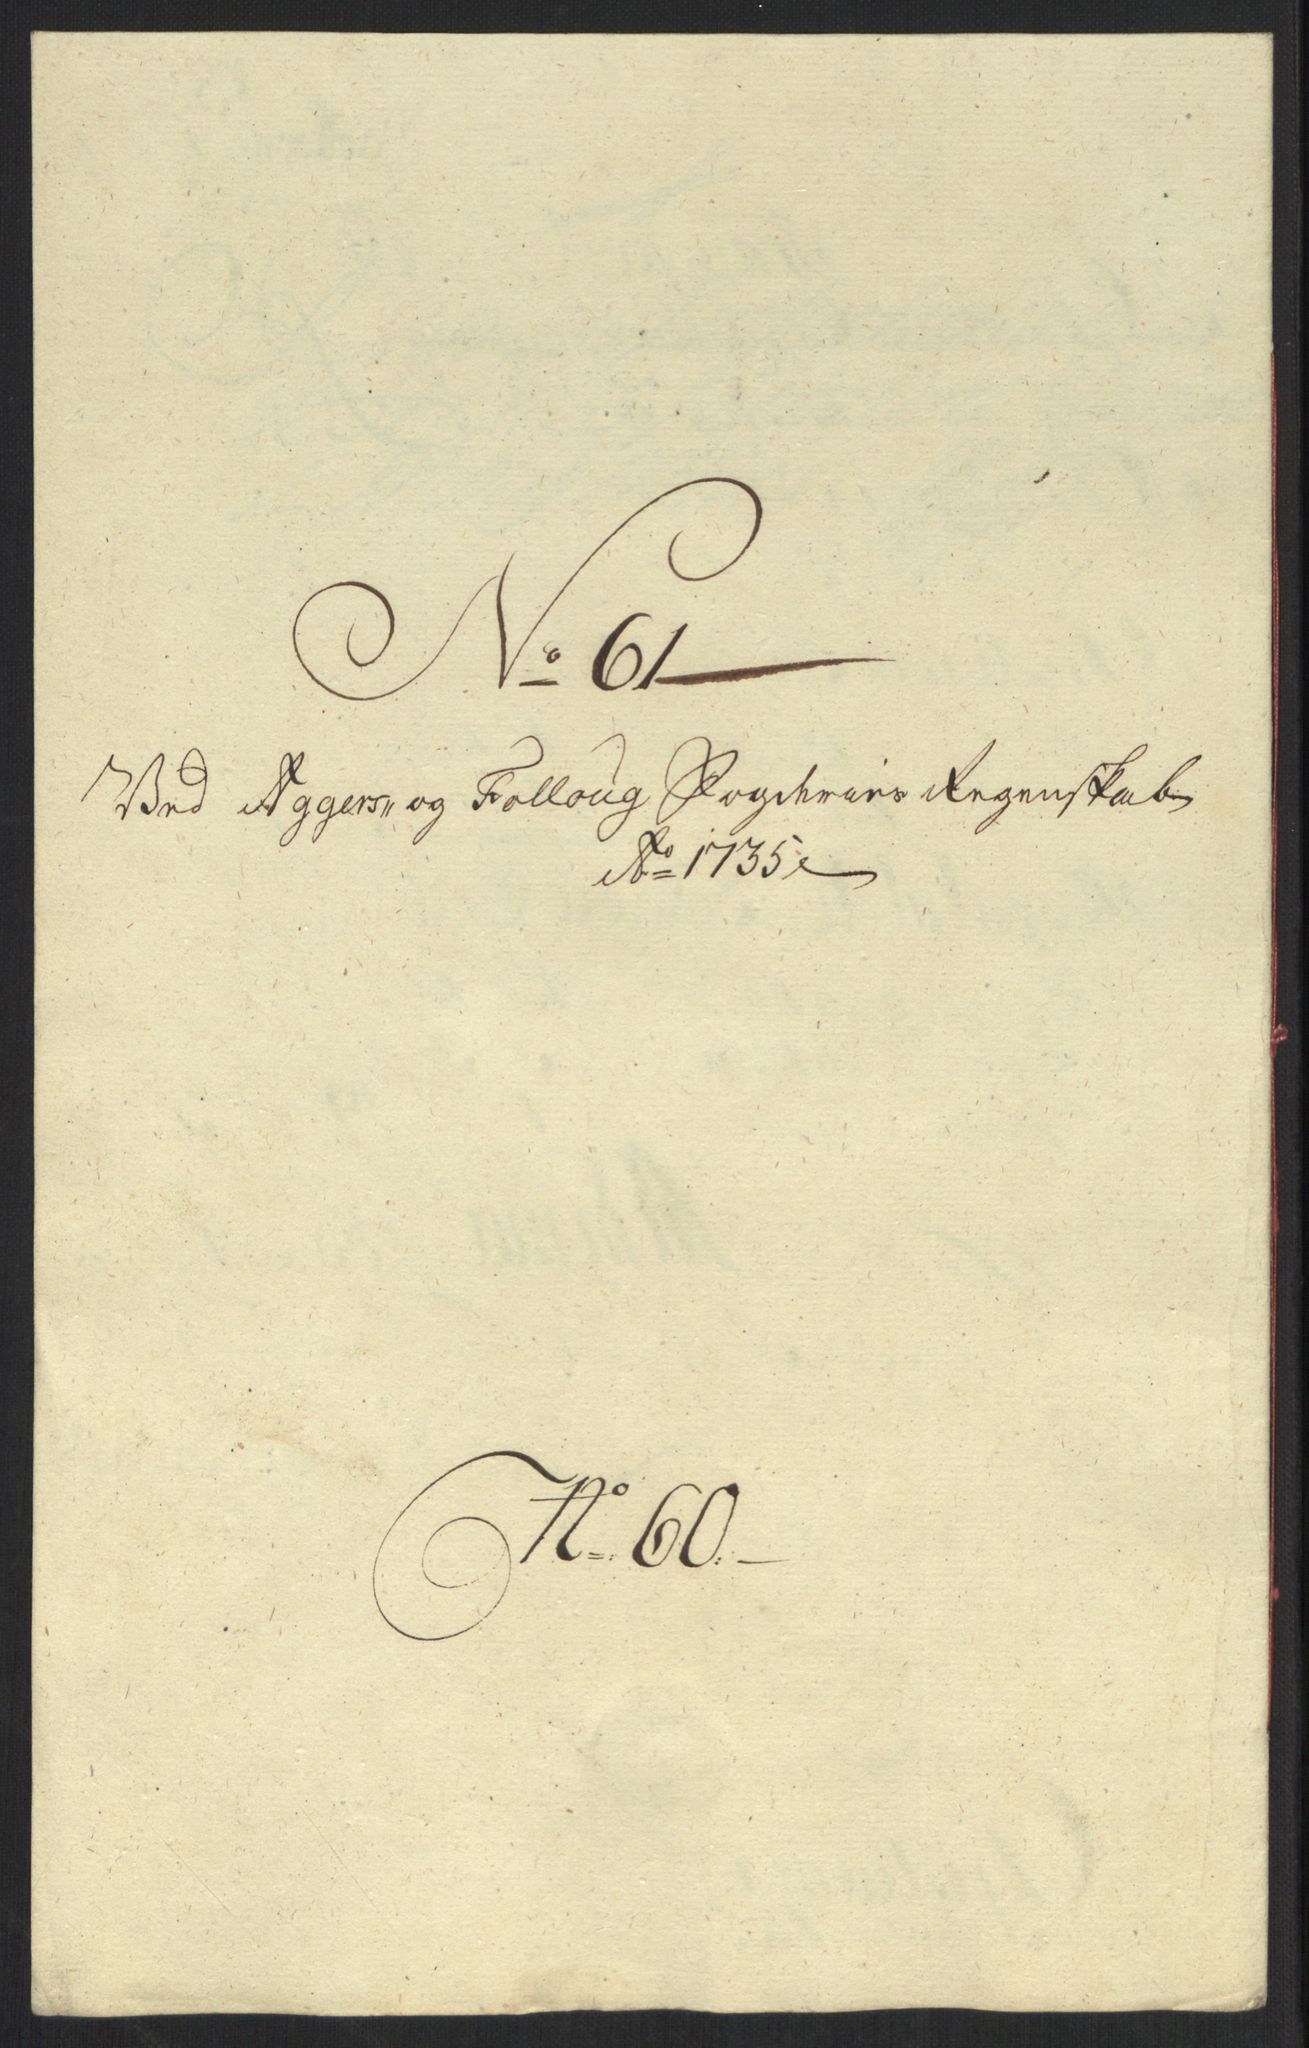 No 61
Ved Aggers- og Folloug Fogderies Regenskab
Ao 1735
No 60.